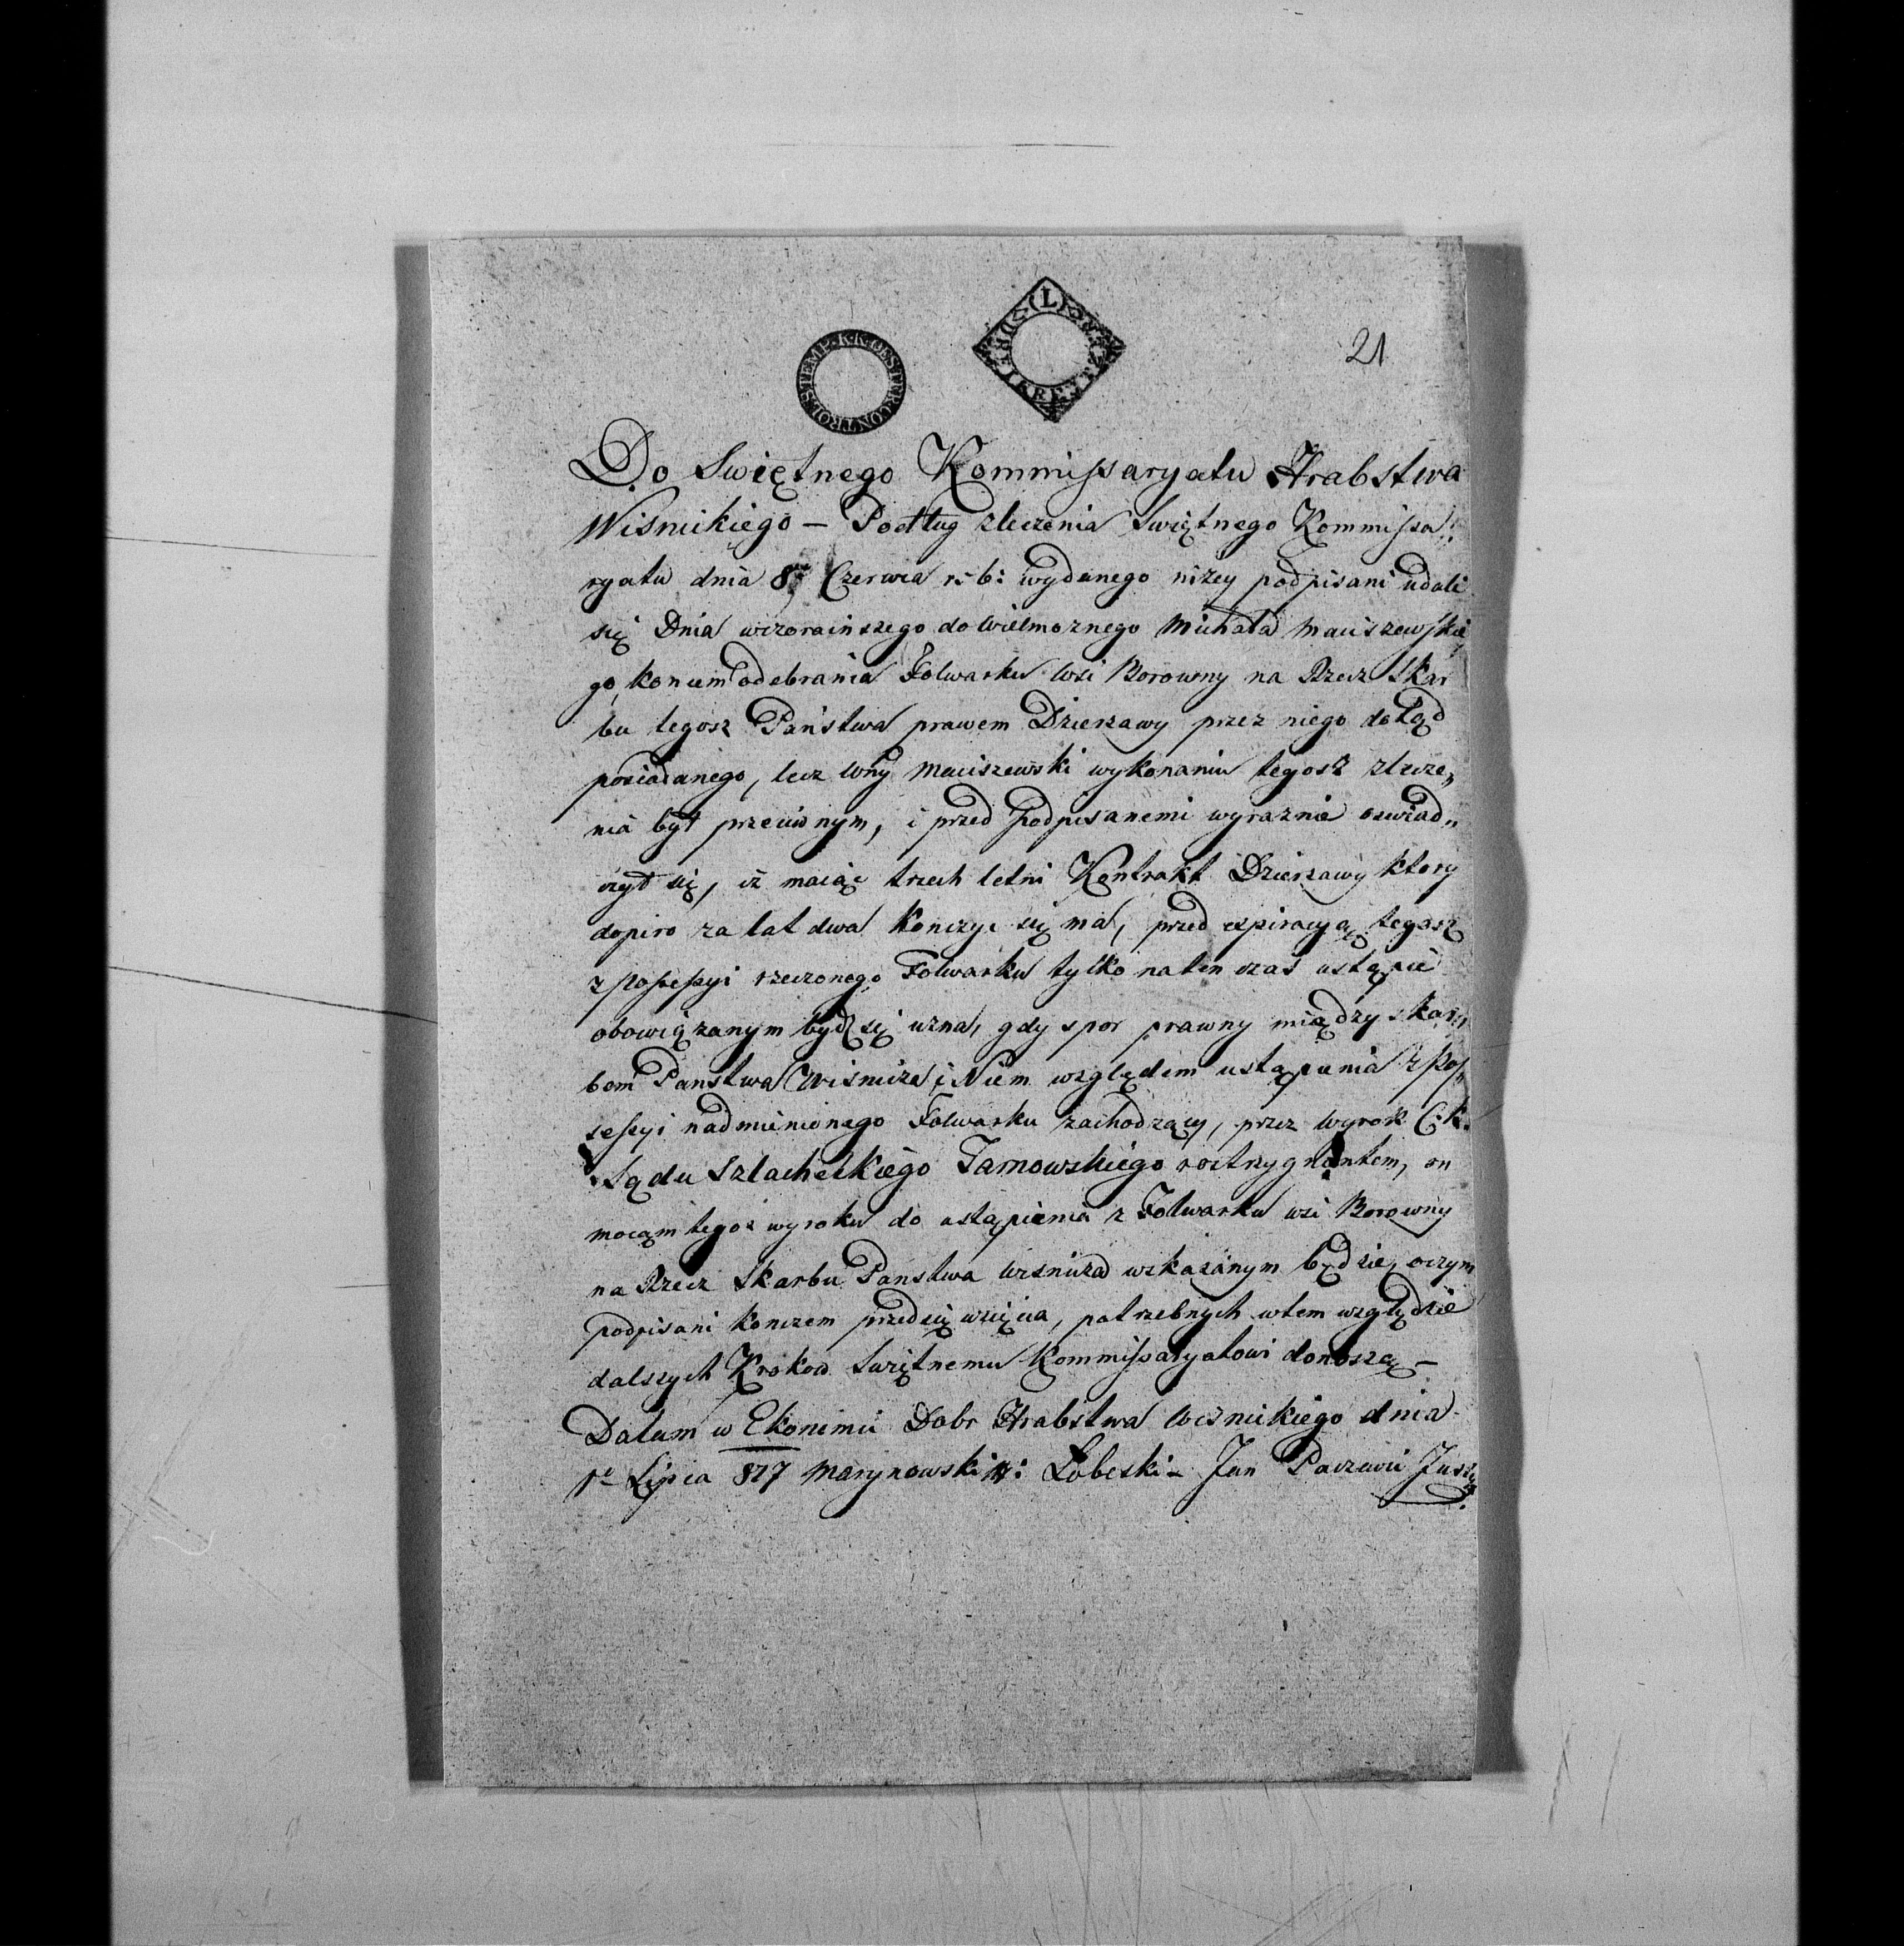 21
STEMP · K · K · OESTER · CONTROL
Do Swiętnego Kommissaryatu Hrabstwa
Wisnickiego — Podług zlecenia Swiętnego Kommissa„
ryatu dnia 8 Czerwca r: b: wydanego niżey podpisani udali
się Dnia wczorainszego do Wielmoznego Michała Maciszewskie
go, koncem odebrania Folwarku wsi Borowny na Rzecz Skar
bu tegosz Państwa prawem Dzierzawy przez niego dotąd
posiadanego, lecz Wny Maciszewski wykonaniu tegosz zlece„
nia był przeciwnym, i przed podpisanemi wyraznie oswiad„
czył się, iż maiąc trzech letni Kontrakt Dzierzawy ktory
dopiro za lat dwa konczyc się ma, przed expiracyą tegosz
z possessyi rzeczonego Folwarku tylko naten czas ustąpić
obowiązanym bydź się uzna, gdy spor prawny miądzy skar„
bem Panstwa Wisnicza i Niem względem ustąpienia z pos„
sessyi nadmienionego Folwarku zachodzący, przez wyrok C. k.
Sądu Szlacheckiego Tarnowskiego roztrzygnontem, on
mocąm tegoż wyroku do ustąpienia z Folwarku wsi Borowny
na Rzecz Skarbu Panstwa Wisnicza wskazanym będzie, oczym
podpisani koncem przedsięwzięcia, potrzebnych wtem względzie
dalszych Krokow Swiętnemu Kommissaryatowi donoszą —
Datum w Ekonomii Dobr Hrabstwa Wisnickiego dnia
1o Lipca 827 Marynowski Łobeski — Jan